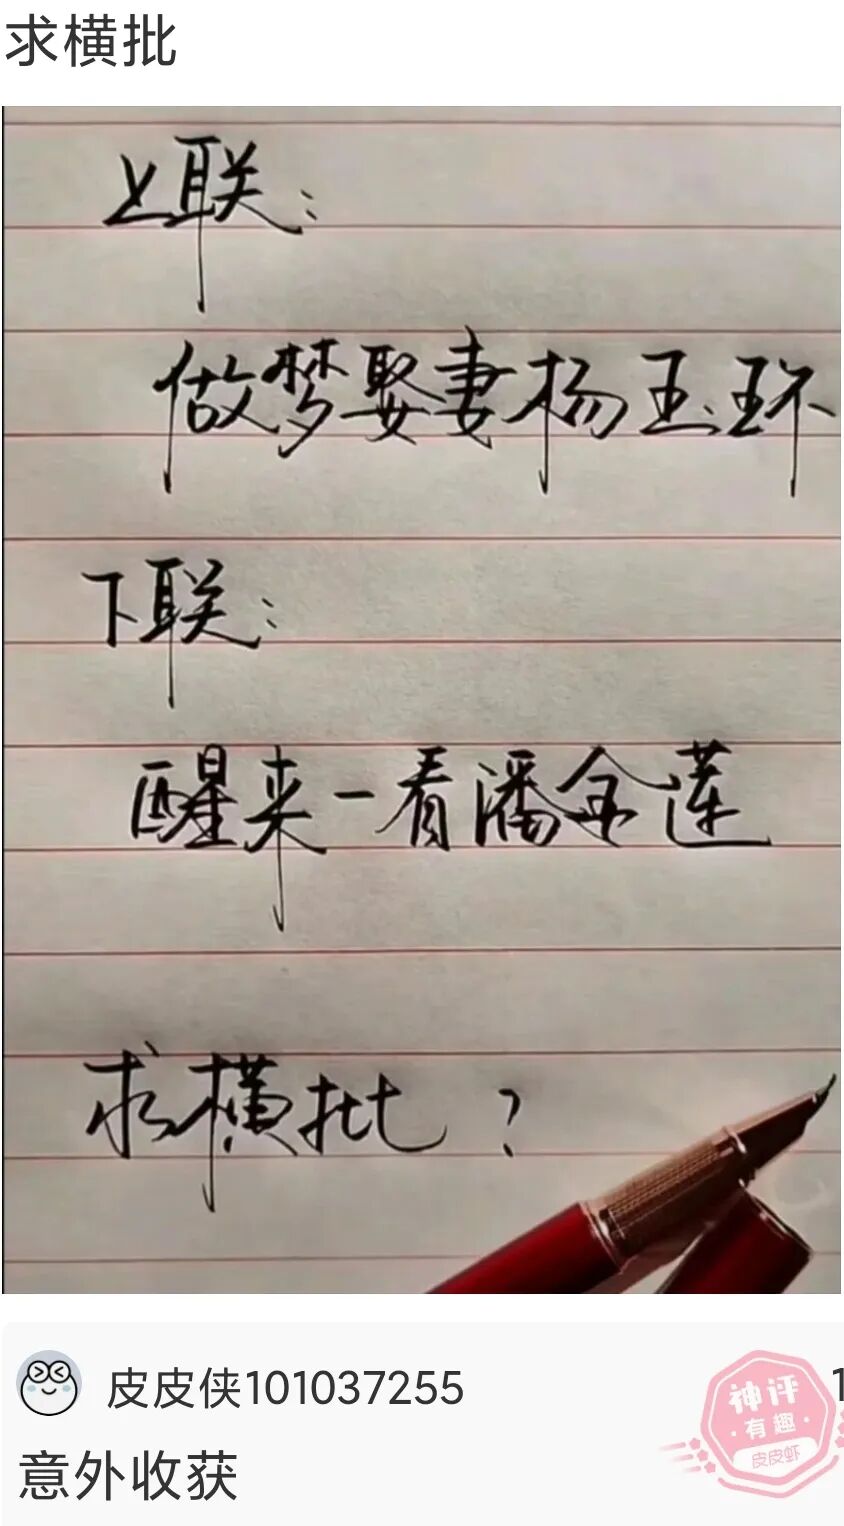 求横批
上联：
做梦娶妻杨玉环
下联：
醒来一看潘金莲
求横批？
皮皮侠101037255
神评
·有趣·
皮皮虾
意外收获